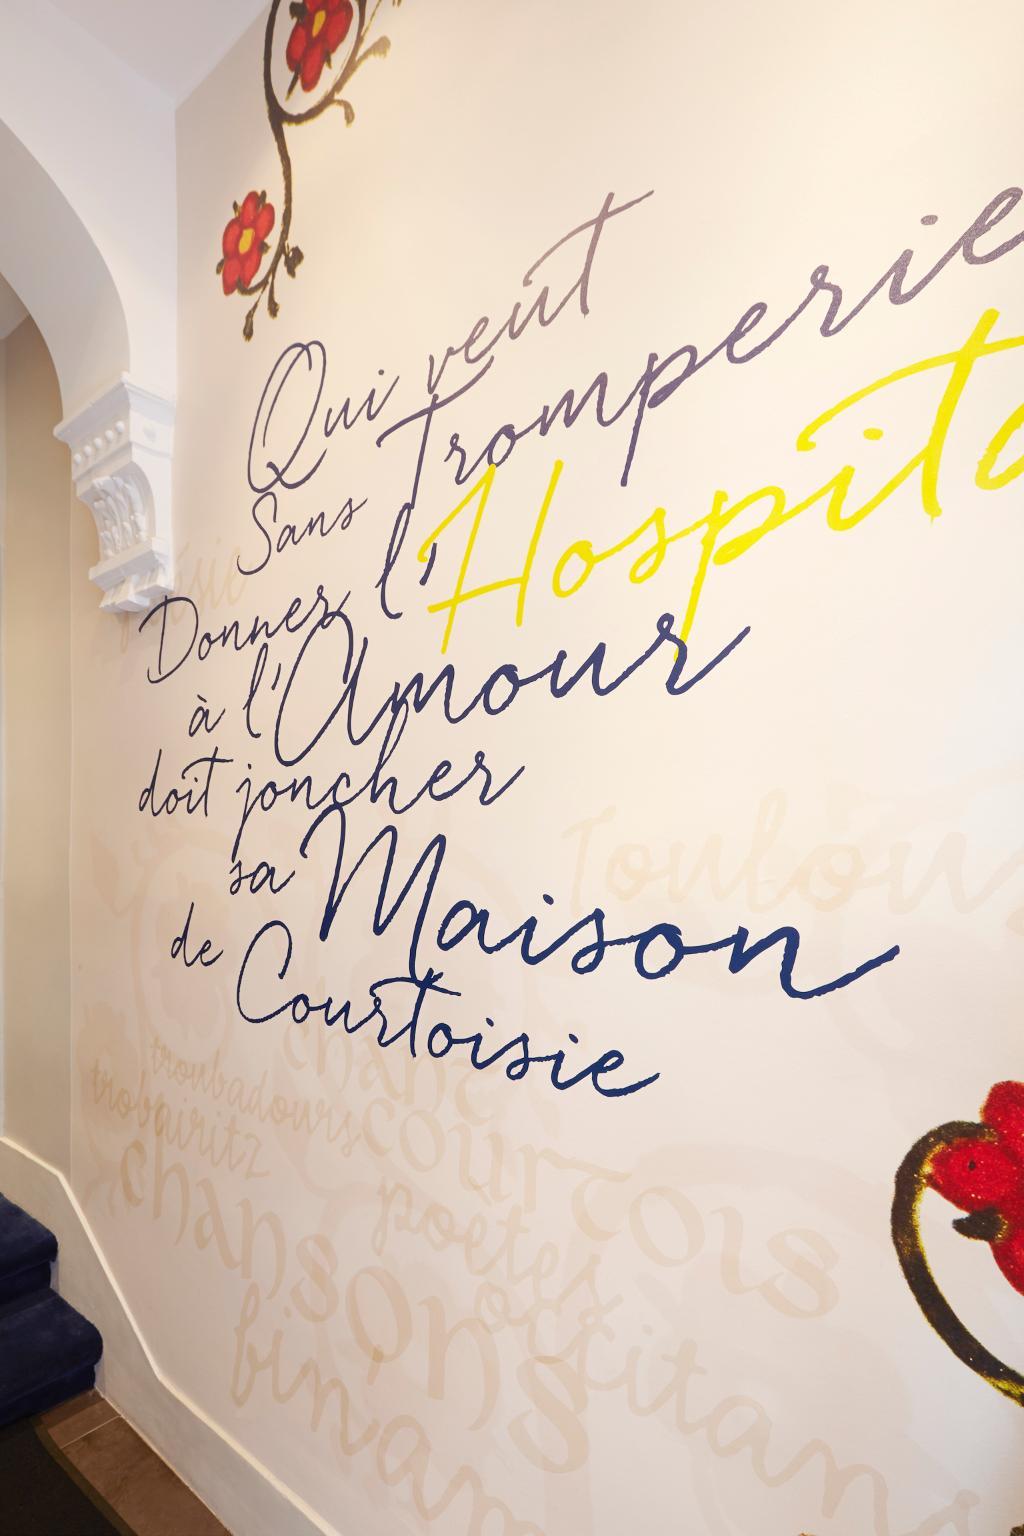 Qui veut
Sans Tromperie
Donner l'Hospita
à l'Amour
doit joncher
sa Maison
de Courtoisie
Toulou
chant
troubadours
trobairitz
courtois
chansons
poetes
occitans